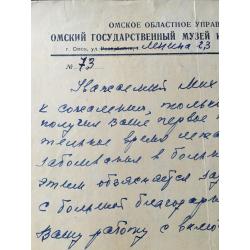 ОМСКОЕ ОБЛАСТНОЕ УПРАВ
ОМСКИЙ ГОСУДАРСТВЕННЫЙ МУЗЕЙ
г. Омск, ул. Ленина 23
№ 73
Уважаемый Мих
к сожалению, только
получил Ваше первое
тельное время лежа
заболевания в больн
этим объясняется за
с большой благодарн
Вашу работу с